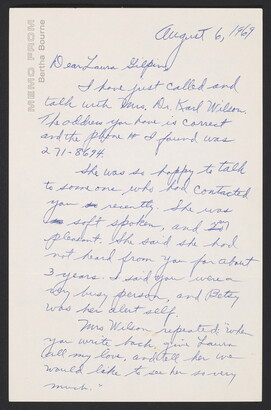 MEMO FROM
Bertha Bourne
August 6, 1969
Dear Laura Gilpin:
I have just called and
talk with Mrs. Dr. Karl Wilson.
The address you have is correct
and the phone # I found was
271-8694.
She was so happy to talk
to someone, who had contacted
you recently. She was
soft spoken, and
pleasant. She said she had
not heard from you for about
3 years. I said you were a
very busy person, and Betsy
was her alert self.
Mrs Wilson repeated, "when
you write back, give Laura
all my love, and tell her we
would like to see her so very
much."